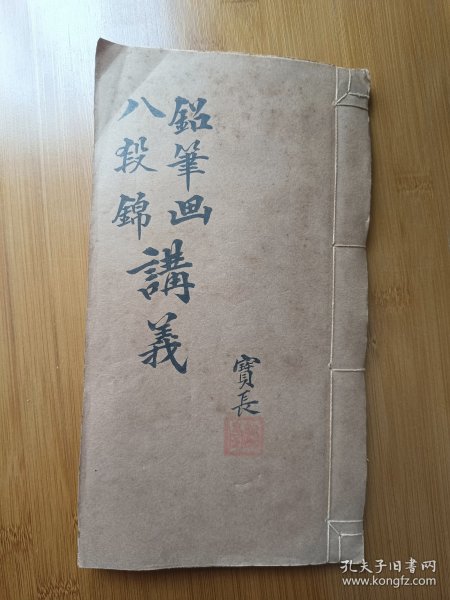 鉛筆画
八段錦
講義
寳長
孔夫子旧书网
www.kongfz.com